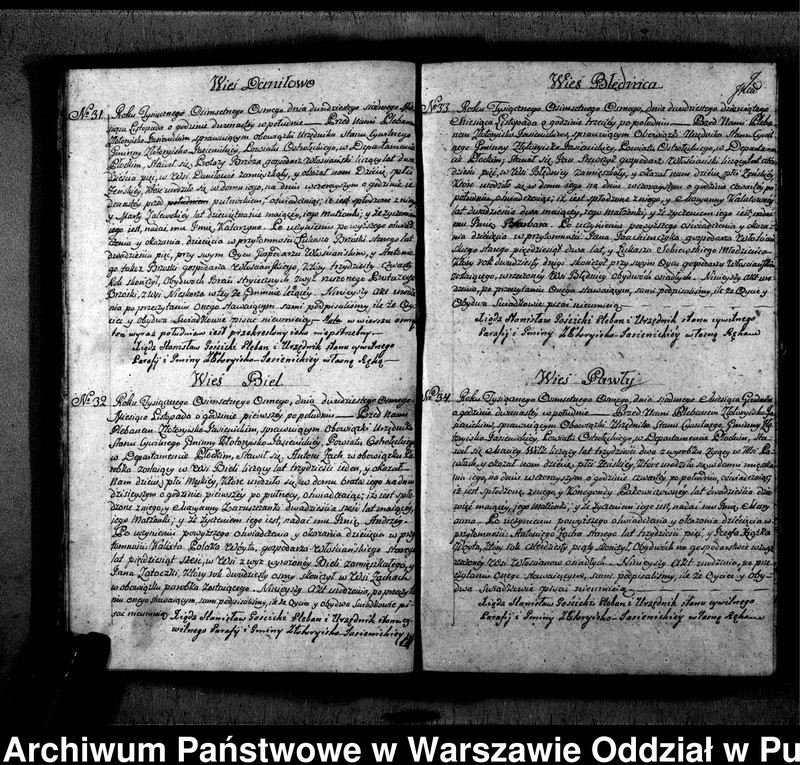 Wieś Daniłowo
Nro 31 Roku Tysiącznego Osimsetnego Osmego, dnia dwudziestego siódmego Mie
siąca Listopada o godzinie dwunastej w południe — Przed Nami Plebanem
Złotoryjsko Jasienickim, sprawującym obowiązki Urzędnika Stanu Cywilnego
Gminny Złotoryisko-Jasienickiej, Powiatu Ostrołęckiego, w Departamencie
Płockim, Stawił się gospodarz Włościański liczący lat dwa
dzieścia pięć, w Wsi Daniłowie zamieszkały, y okazał nam Dziecię płci
Zeńskiej, które urodziło się w domu iego, na dniu wczorayszym o godzinie ie
denastej przed południem, oświadczając; iż iest spłodzone z niego,
y Marty Zalewskiej lat dziewiętnaście maiącey, iego małżonki; y że życzeniem
iego iest, nadać mu Imię Katarzyna. Po uczynieniu powyższego oświad
czenia y okazania, dziecięcia w przytomności Łukasza Brzóski Starego lat
dwadzieścia pięć, przy swym Oycu Gospodarzu Włościańskim, y Antonie
go także Brzóski gospodarza Włościańskiego, który trzydziesty czwarty
Rok skończył, Obydwoch Braci Stryiecznych
Brzóski, z Wsi w tey że Gminnie leżącey. Ninieyszy Akt urodze
nia po przeczytaniu Onego Stawaiącym sami podpisaliśmy, ile że Oy
ciec y obydwa Świadkowie pisać nieumieią —
ten wyraz południem iest przekreślony iako niepotrzebny —
Xiądz Stanisław Gościcki Pleban i Urzędnik stanu cywilnego
Parafyi i Gminy Złotoryisko-Jasienickiey własną Ręką
Wieś Biel
Nro 32 Roku Tysiącznego Osimsetnego Osmego, dnia dwudziestego Osmego
Miesiąca Listopada o godzinie pierwszey po południu — Przed Nami
Plebanem Złotoryisko Jasienickim, sprawującym Obowiązki Urzędnika
Stanu Cywilnego Gminny Złotoryisko-Jasienickiej Powiatu Ostrołęckiego
w Departamencie Płockim, Stawił się, Antoni Zach, w obowiązku Pa
robka zostaiący w Wsi Bieli liczący lat trzydzieści ieden, y okazał
Nam dziecię, płci Męskiey, które urodziło się, w domu brata iego na dniu
dzisieyszym o godzinie pierwszey po północy, oświadczaiąc; iż iest spło
dzone z niego, y Maryanny Zaruszczanki dwadzieścia sześć lat maiącey,
iego Małżonki; y że życzeniem iego iest, nadać mu Imię Andrzey.
Po uczynieniu powyższego oświadczenia, y okazania dziecięcia w przy
tomności Kalixta Polaka Woyta, gospodarza Włościańskiego starego
lat pięćdziesiąt sześć, w Wsi z wyż wyrażoney Bieli zamieszkałego, y
Jana Zatoczki, który rok dwudziesty osmy skończył w Wsi Zachach
w obowiązku parobka zostaiącego. Ninieyszy Akt urodzenia, po przeczyta
niu onego stawaiącym, sami podpisaliśmy, ile że Oyciec y obydwa Świadkowie pi
sać nieumieią Xiądz Stanisław Gościcki Pleban i Urzędnik stanu cy
wilnego Parafyi i Gminy Złotoryisko-Jasienickiey
Wieś Błędnica
Nro 33 Roku Tysiącznego Osimsetnego Osmego, dnia dwudziestego dziewiątego
Miesiąca Listopada o godzinie trzeciey po południu — Przed Nami Pleba
nem Złotoryisko Jasienickim, sprawuiącym Obowiązki Urzędnika Stanu Cywil
nego Gminny Złotoryisko Jasienickiej, Powiatu Ostrołęckiego, w Departamen
cie Płockim, Stawił się Jan Szewczyk gospodarz Włościański liczący lat
dzieści pięć, w Wsi Błędnicy zamieszkały, y okazał nam dziecię płci Zeńskiey,
które urodziło się w domu iego, na dniu wczorayszym o godzinie czwartey po
południu, oświadczaiąc; iż iest spłodzone z niego, y Maryanny
lat dwadzieścia dwa maiącey, iego Małżonki; y że życzeniem iego iest, nadać
mu Imię Barbara. Po uczynieniu powyższego oświadczenia y okaza
nia dziecięcia w przytomności Jana gospodarza Włościań
skiego Starego pięćdziesiąt dwa lat, y Łukasza Sobieraiskiego Młodzieńca
który rok dwudziesty drugi skończył przy swym Oycu gospodarzu Włościańskim
zostaiącego, w rzeczoney Wsi Błędnicy Obydwoch osiadłych. Ninieyszy Akt uro
dzenia, po przeczytaniu Onego Stawaiącym, sami podpisaliśmy, ile że Oyciec y
Obydwa Świadkowie pisać nieumieią
Xiądz Stanisław Gościcki Pleban i Urzędnik stanu cywilnego
Parafyi i Gminy Złotoryisko-Jasienickiey własną Ręką
Wieś Pawły
Nro 34 Roku Tysiącznego Osimsetnego Osmego, dnia siódmego Miesiąca Grudnia
o godzinie dwunastey w południe — Przed Nami Plebanem Złotoryisko Ja
sienickim, sprawuiącym Obowiązki Urzędnika Stanu Cywilnego, Gminny Zło
toryisko Jasienickiey, Powiatu Ostrołęckiego, w Departamencie Płockim, Sta
wił się Maciey Wilk liczący lat trzydzieści dwa z wyrobku żyiący w Wsi Pa
włach, y okazał nam dziecię, płci Zeńskiey, które urodziło się, w domu mieszka
nia iego, na dniu wczorayszym o godzinie czwartey po południu, oświadczaiąc
iż iest spłodzone z niego, y Kunegondy lat dwadzieścia dzie
więć maiącey, iego Małżonki; y że życzeniem iego iest, nadać mu Imię Mary
anna. Po uczynieniu powyższego oświadczenia y okazania dziecięcia w
przytomności Mateusza Starego lat trzydzieści pięć, y Józefa
Woyta, który rok czterdziesty piąty skończył, Obydwoch na gospodarstwie w wy
rażoney Wsi Włościanów osiadłych. Ninieyszy Akt urodzenia, po prze
czytaniu Onego Stawaiącym, sami podpisaliśmy, ile że Oyciec y Oby
dwa Świadkowie pisać nieumieią
Xiądz Stanisław Gościcki Pleban i Urzędnik stanu cywilnego
Parafyi i Gminy Złotoryisko-Jasienickiey własną Ręką
Archiwum Państwowe w Warszawie Oddział w Pu